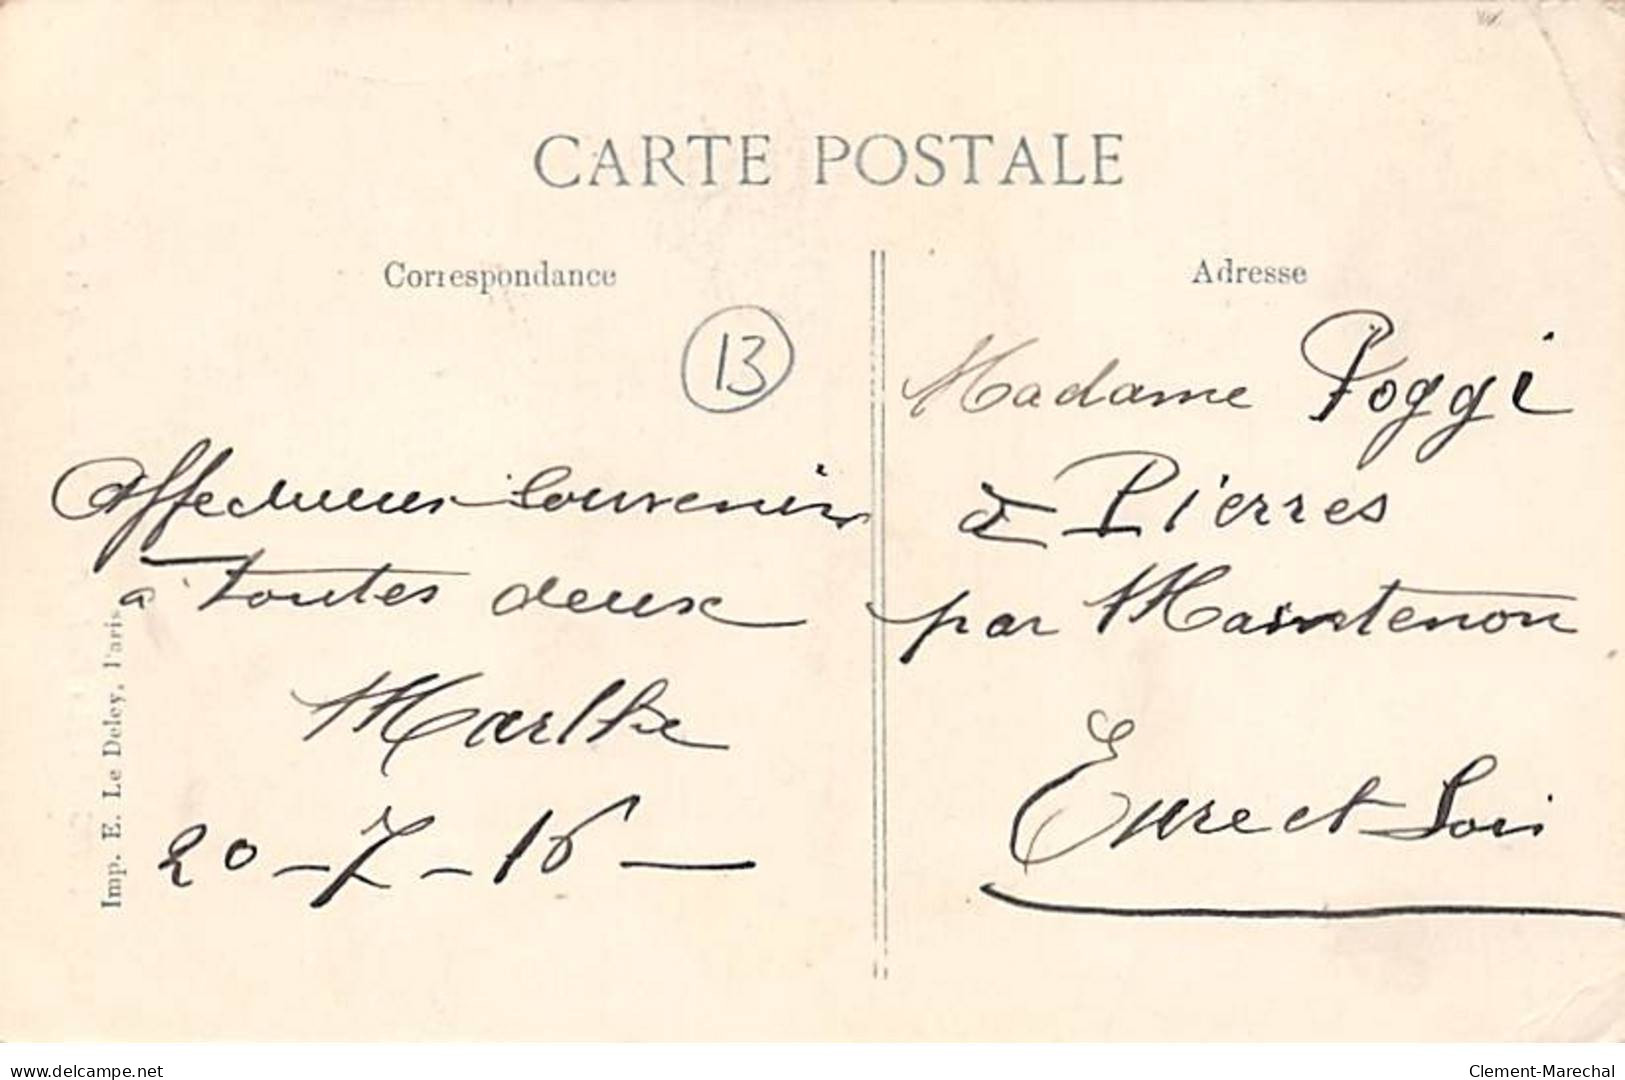 CARTE POSTALE
Correspondance
13
Affectueux souvenirs
à toutes deux
Marthe
20-7-16
Imp. E. Le Deley, Paris
Adresse
Madame Poggi
à Pierres
par Maintenon
Eure et Loir
www.delcampe.net
Clement-Marechal